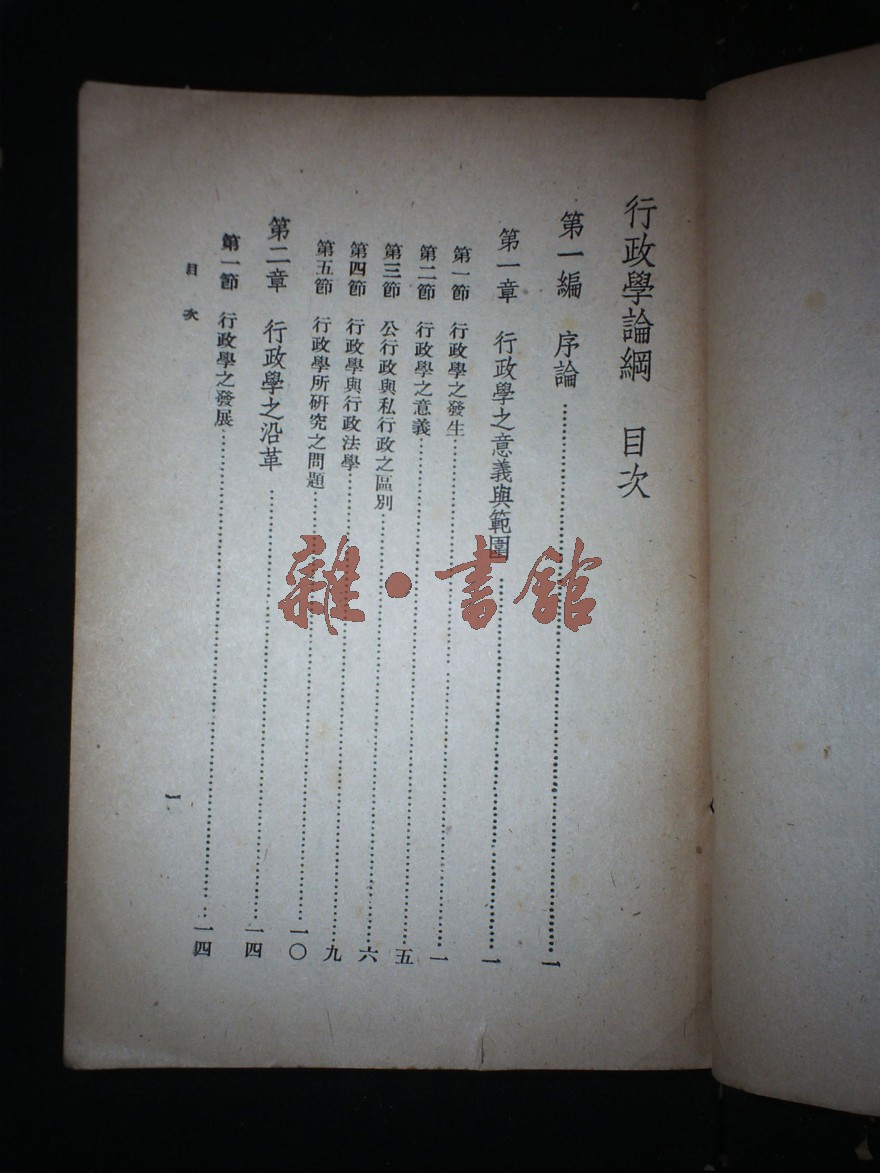 行政學論綱　目次
第一編　序論……………一
第一章　行政學之意義與範圍……………一
第一節　行政學之發生……………一
第二節　行政學之意義……………五
第三節　公行政與私行政之區別……………六
第四節　行政學與行政法學……………九
第五節　行政學所研究之問題……………一〇
第二章　行政學之沿革……………一四
第一節　行政學之發展……………一四
目次
一
雜・書館